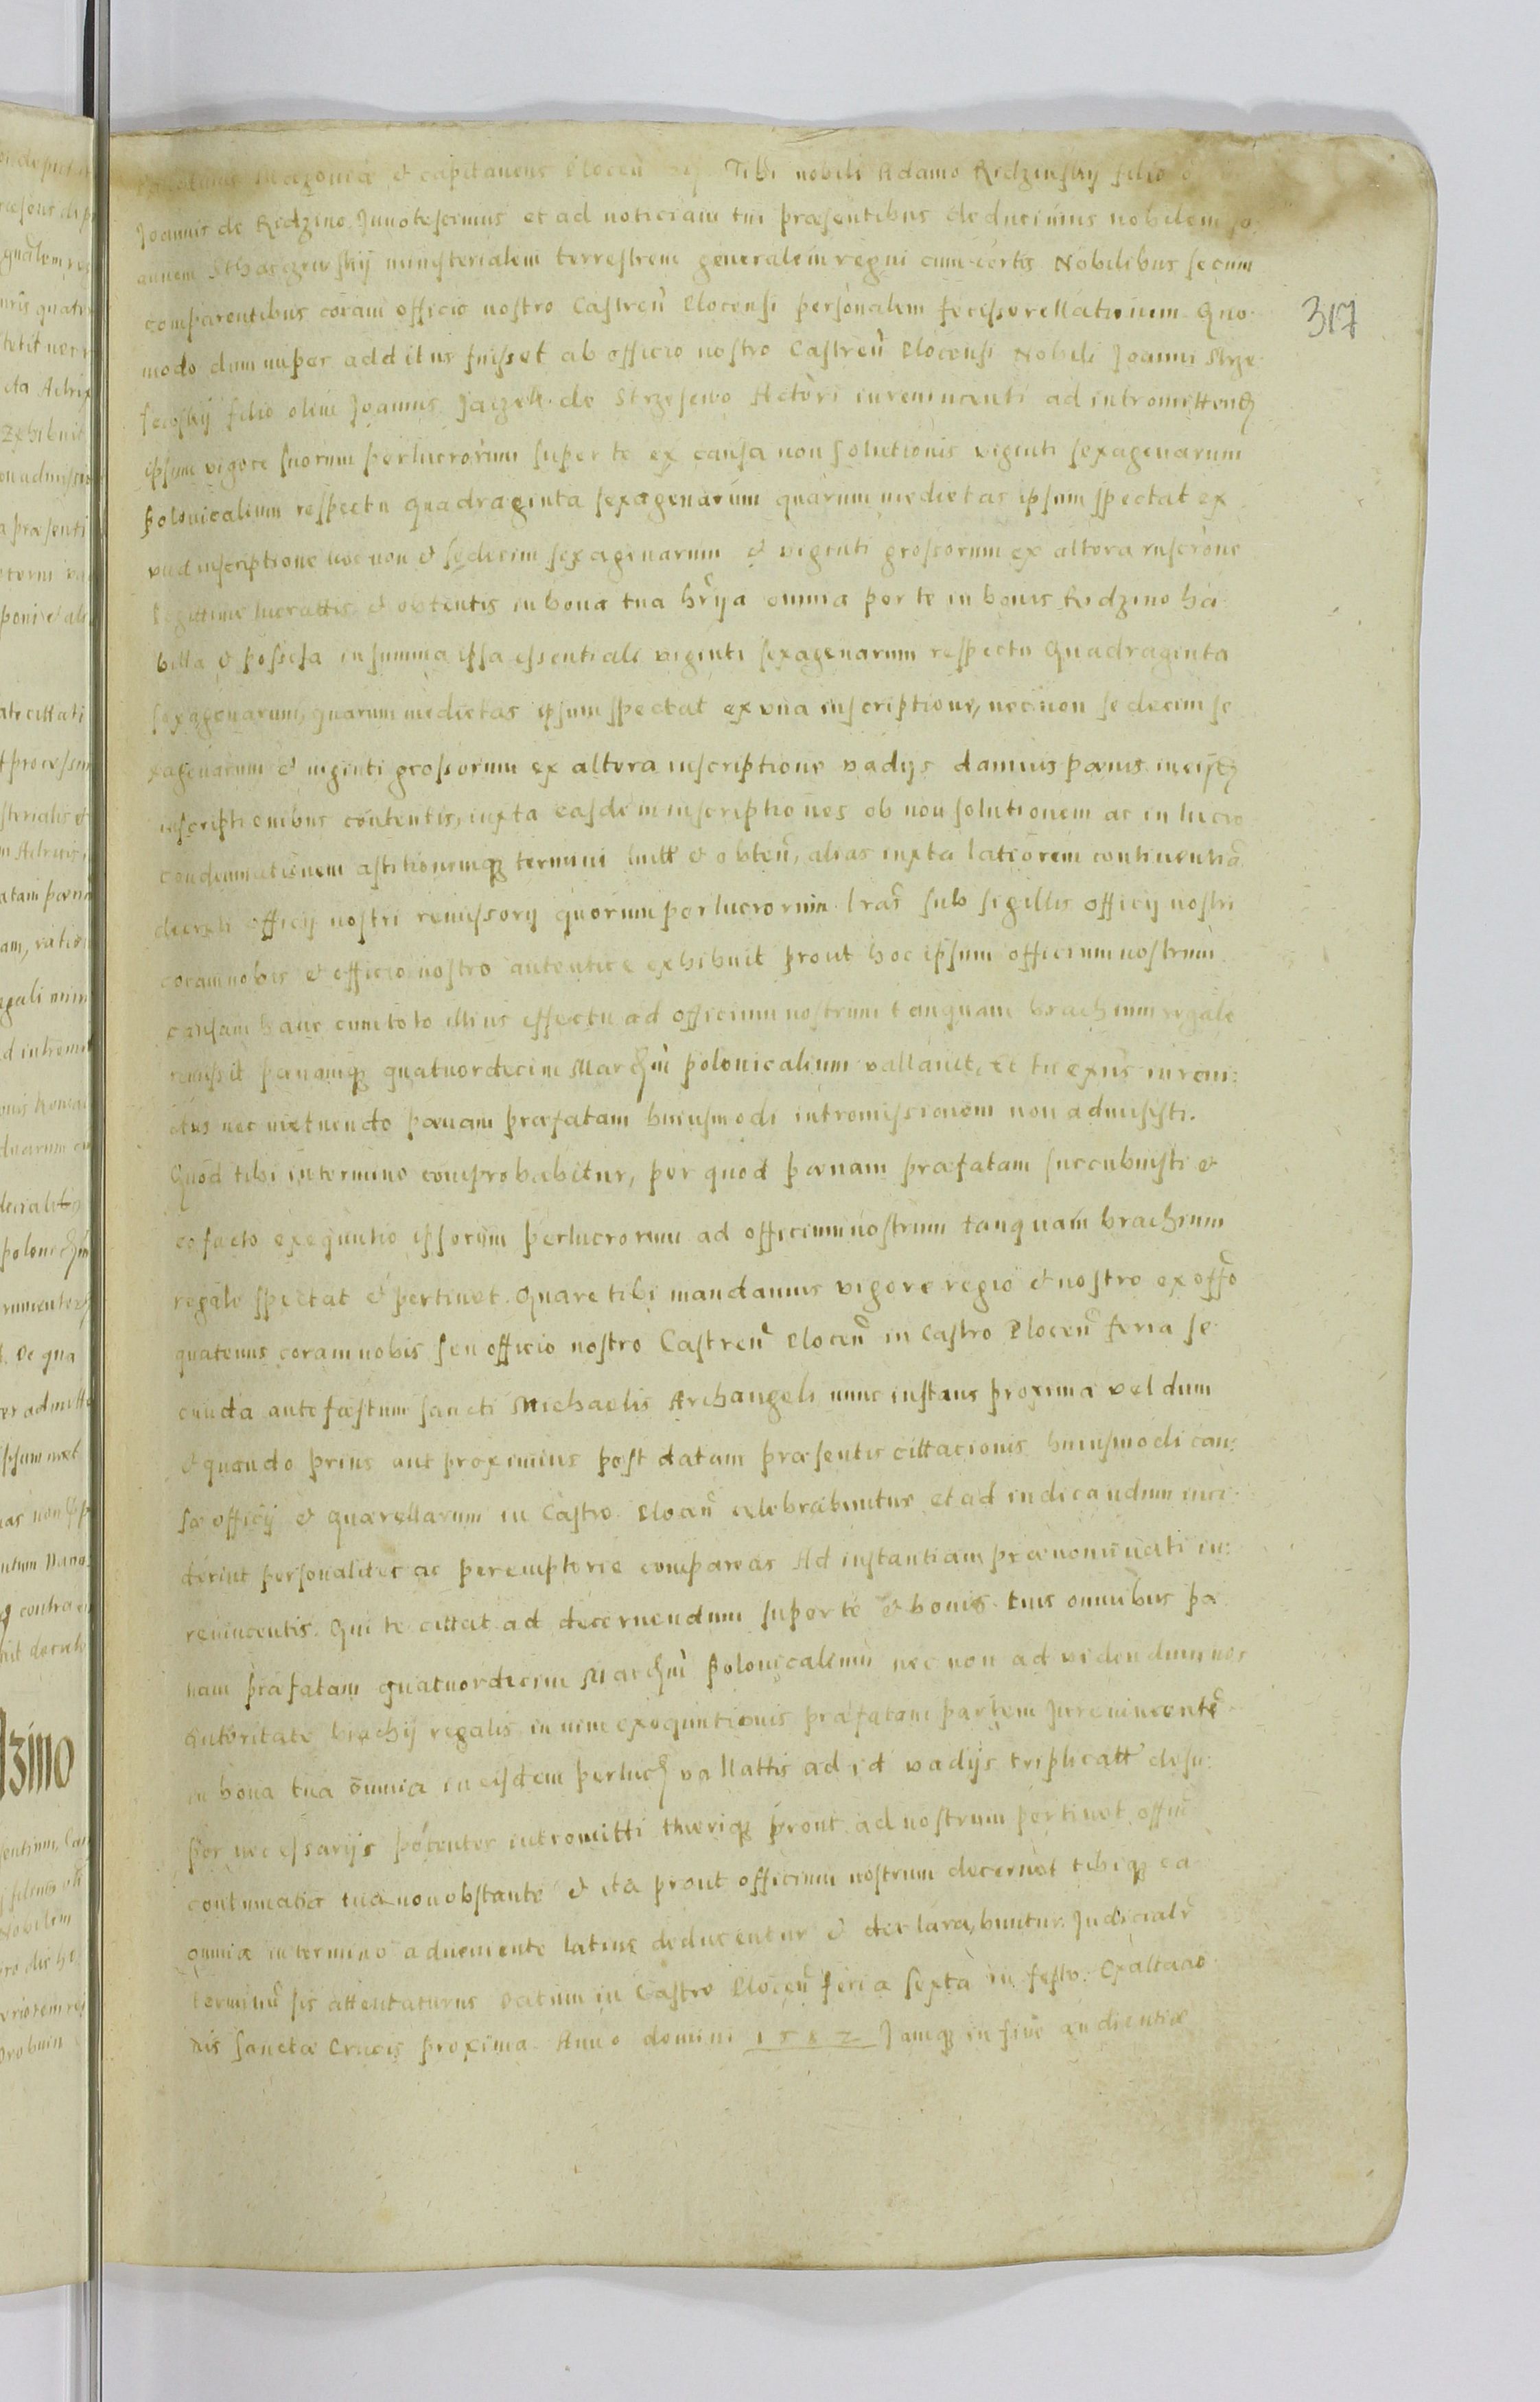 Mazoviæ et capitaneus Plocen̄ Tibi nobili Adamo Redzinskÿ filio
Joannis de Redzino Innotescimus et ad noticiam tui præsentibus deducimus nobilem Jo
annem ministerialem terrestrem generalem regni cum certis Nobilibus secum
comparentibus coram officio nostro Castren̄ Plocensi personalem fecisse rellationem. Quo
modo dum nuper additus fuisset ab officio nostro Castren̄ Plocensi Nobili Joanni Strze
sewskÿ filio olim Joannis de Strzesewo Actori iurevincenti ad intromittend
ipsum vigore suorum perlucrorum super te ex causa non solutionis viginti sexagenarum
polonicalium respectu quadraginta sexagenarum quarum medietas ipsum spectat ex
una inscriptione nec non et sedecim sexagenarum et viginti grossorum ex altera inscrōne
legittime lucrattis et obtentis in bona tua hrÿa omnia per te in bonis Redzino ha
bitta et possesa in summa ipsa essentiali viginti sexagenarum respectu Quadraginta
sexagenarum, quarum medietas ipsum spectat ex una inscriptione, nec non sedecim se
xagenarum et viginti grossorum ex altera inscriptione vadÿs damnis pænis in eisdē
inscriptionibus contentis, iuxta easdem inscriptiones ob non solutionem ac in lucro
condemnationem astitionemq termini lutt et obten̄, alias iuxta latiorem continentiā
decreti officÿ nostri remissorÿ quorum perlucrorum lrās sub sigillis officÿ nostri
coram nobis et officio nostro autentice exhibuit prout hoc ipsum officium nostrum
causam hanc cum toto illius effectu ad officium nostrum tanquam brachium regale
remissit pænamq quatuordecim Marcm̄ polonicalium vallauit, et tu exn̄s inreni:
tus nec metuendo pænam præfatam huiusmodi intromissionem non admisisti.
Quod tibi in termino comprobabitur, per quod pænam præfatam succubuisti et
eo facto exequutio ipsorum perlucrorum ad officium nostrum tanquam brachium
regale spectat et pertinet. Quare tibi mandamus vigore regio et nostro ex offō
quatenus coram nobis seu officio nostro Castren̄ Plocen̄ in Castro Plocen̄ feria se
cunda ante fæstum sancti Michaelis Archangeli nunc instans proxima vel dum
et quando prius aut proximius post datam præsentis cittacionis huiusmodi cau:
sæ officÿ et quærellarum in Castro Plocen̄ celebrabuntur et ad iudicandum inci
derint personaliter ac peremptorie compareas Ad instantiam prænominati iu:
revincentis. Qui te cittat ad decernendum super te et bonis tuis omnibus pæ
nam præfatam quatuordecim Marcm̄ Polonicalium nec non ad videndum nos
autoritate brachÿ regalis in vim exequutionis præfatam partem Jurevincentē
in bona tua omnia in eisdem perluc vallattis ad id vadÿs triplicatt desu:
per necessarÿs potenter intromitti tueriq prout ad nostrum pertinet offm̄
contumatia tua non obstante et ita prout officium nostrum decernet tibiq ea
omnia in termino adveniente latius deducentur et declarabuntur. Judicialr
terminū sis attentaturus Datum in Castro Plocen̄ feria sexta in festo Exaltatio
nis Sanctæ Crucis proxima. Anno domini 1582 Jamq in fine audientiæ
317